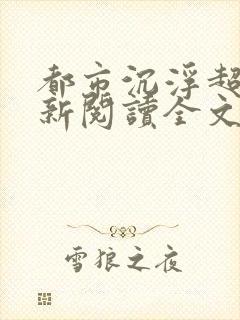 都市沉浮超
新閱讀全文
雪狼之夜